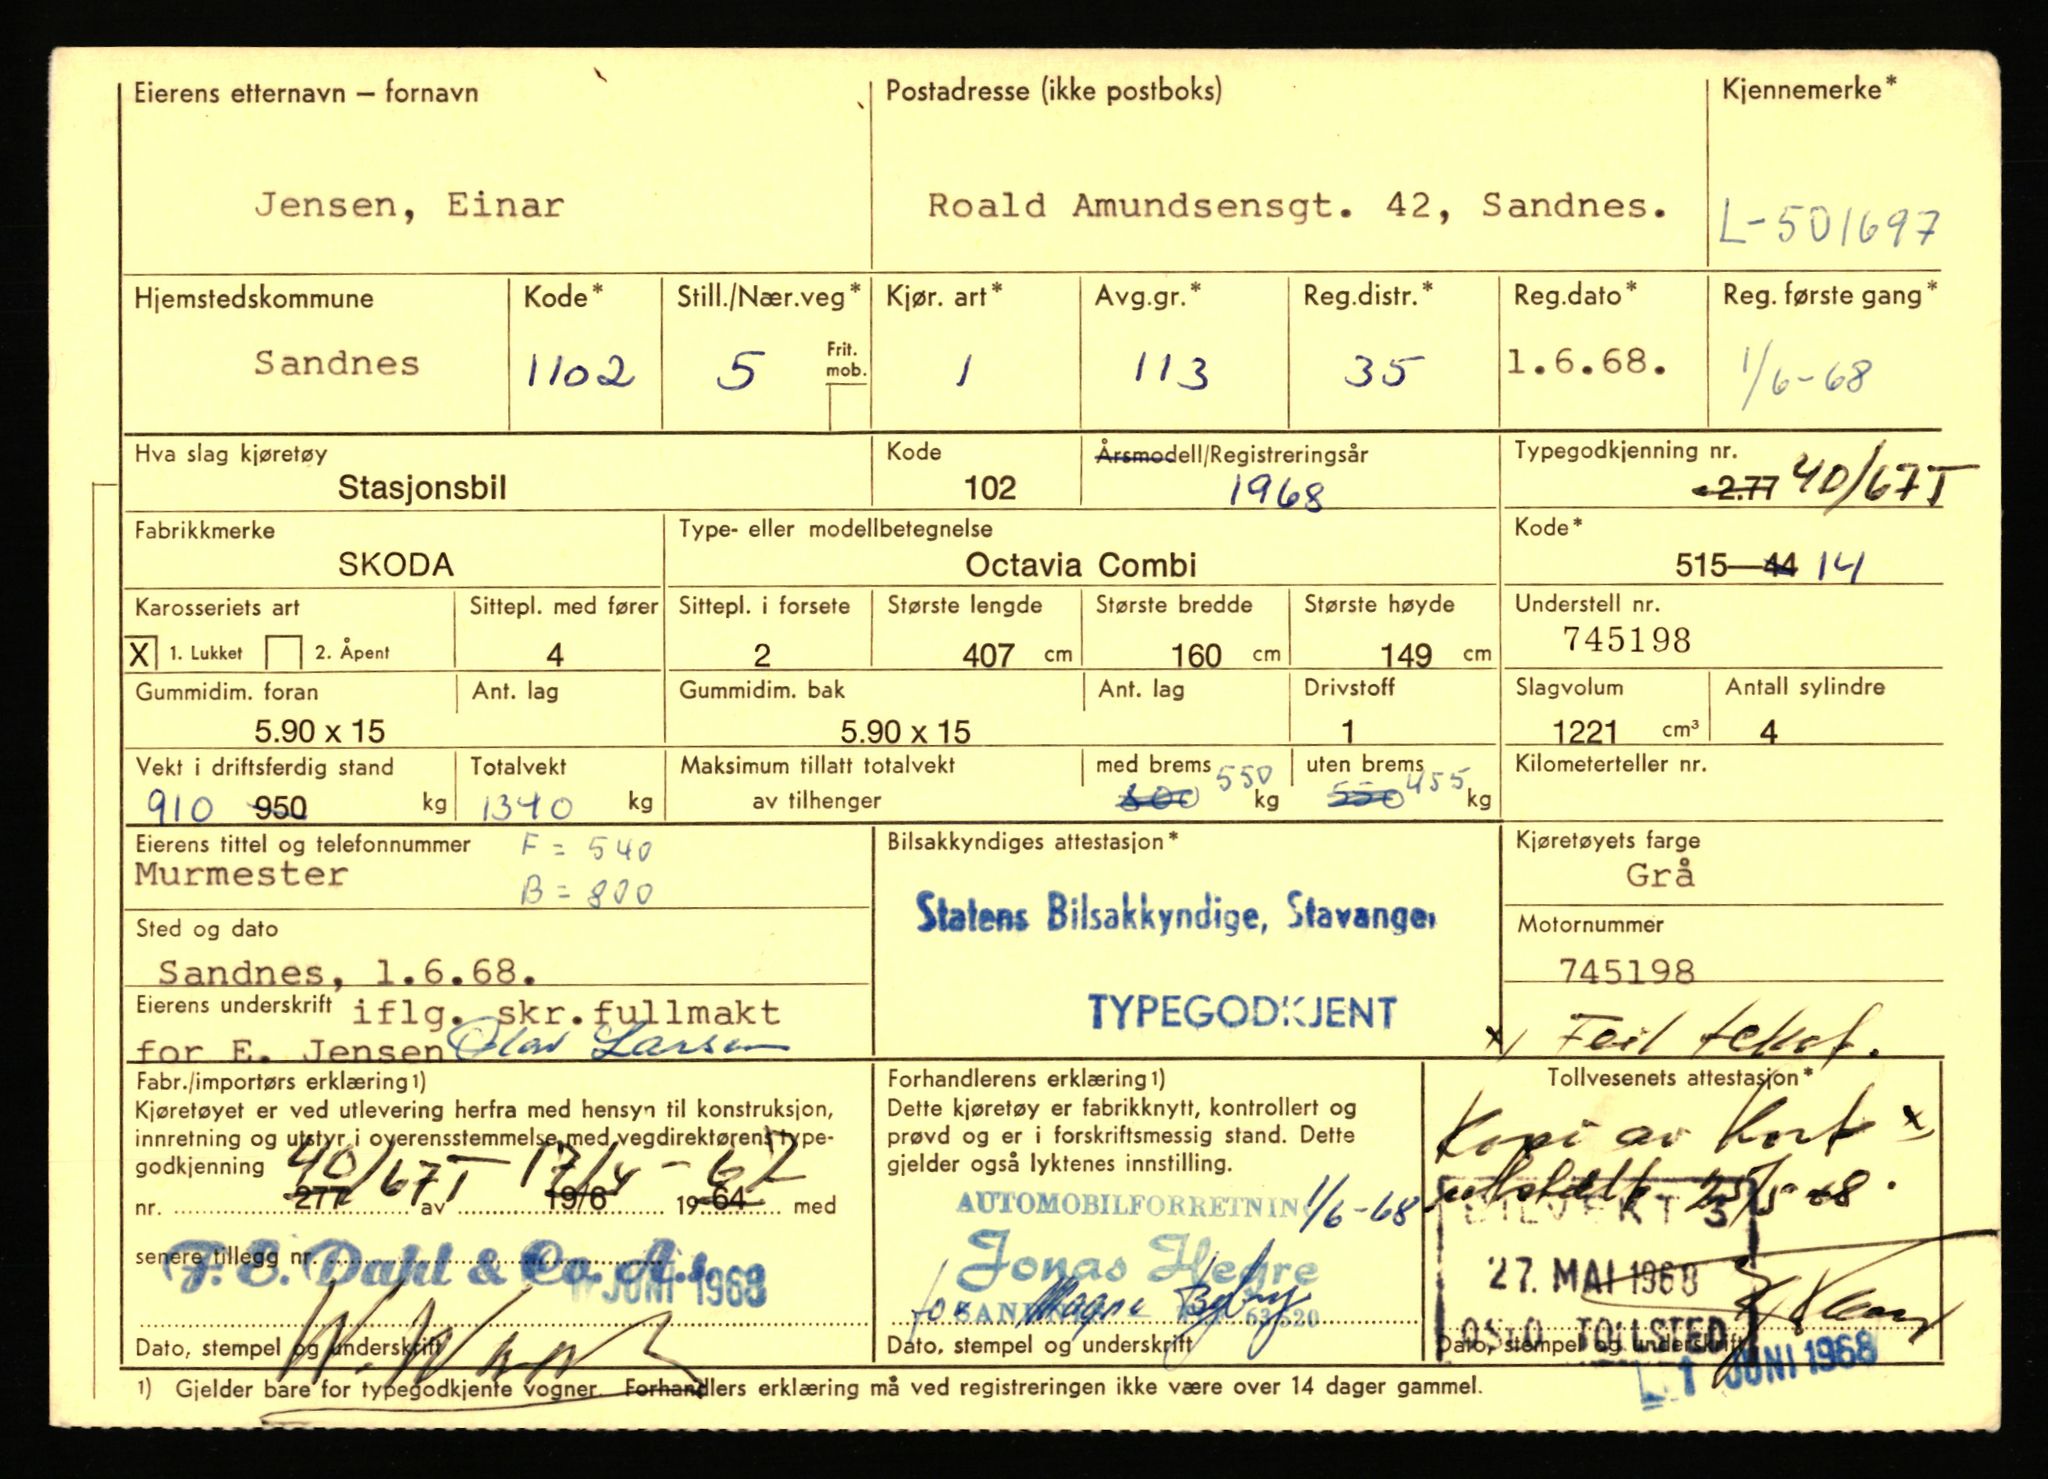 Eierens etternavn – fornavn Postadresse (ikke postboks) Kjennemerke*
Jensen, Einar Roald Amundsensgt. 42, Sandnes. L-501697
Hjemstedskommune Kode* Still./Nær.veg* Kjør. art* Avg.gr.* Reg.distr.* Reg.dato* Reg. første gang*
Sandnes 1102 5 Frit. mob. 1 113 35 1.6.68. 1/6-68
Hva slag kjøretøy Kode Årsmodell/Registreringsår Typegodkjenning nr.
Stasjonsbil 102 1968 2.77 40/67T
Fabrikkmerke Type- eller modellbetegnelse Kode*
SKODA Octavia Combi 515—44 14
Karosseriets art Sittepl. med fører Sittepl. i forsete Største lengde Største bredde Største høyde Understell nr.
X 1. Lukket 2. Åpent 4 2 407 cm 160 cm 149 cm 745198
Gummidim. foran Ant. lag Gummidim. bak Ant. lag Drivstoff Slagvolum Antall sylindre
5.90 x 15 5.90 x 15 1 1221 cm³ 4
Vekt i driftsferdig stand Totalvekt Maksimum tillatt totalvekt med brems uten brems Kilometerteller nr.
910 950 kg 1340 kg av tilhenger 800 550 kg 550 455 kg
Eierens tittel og telefonnummer F = 540 Bilsakkyndiges attestasjon* Kjøretøyets farge
Murmester B = 800 Grå
Statens Bilsakkyndige, Stavanger
Sted og dato Motornummer
Sandnes, 1.6.68. 745198
Eierens underskrift iflg. skr.fullmakt TYPEGODKJENT x Feil tekst.
for E. Jensen Olav Larsen
Fabr./importørs erklæring1) Forhandlerens erklæring1) Tollvesenets attestasjon*
Kjøretøyet er ved utlevering herfra med hensyn til konstruksjon, Dette kjøretøy er fabrikknytt, kontrollert og Kopi av kort x
innretning og utstyr i overensstemmelse med vegdirektørens type- prøvd og er i forskriftsmessig stand. Dette
godkjenning 40/67T 17/4-67 gjelder også lyktenes innstilling. utstedt 25/5-68.
nr. 277 av 19/8 1964 med AUTOMOBILFORRETNING 1/6-68 BILVERT 3
senere tillegg nr. F. E. Dahl & Co. A.s JUNI 1968 Jonas Hegre 27. MAI 1968
for SANDNES 63520
OSLO TOLLSTED
Dato, stempel og underskrift Dato, stempel og underskrift Dato, stempel og underskrift
L. 1 JUNI 1968
1) Gjelder bare for typegodkjente vogner. Forhandlers erklæring må ved registreringen ikke være over 14 dager gammel.